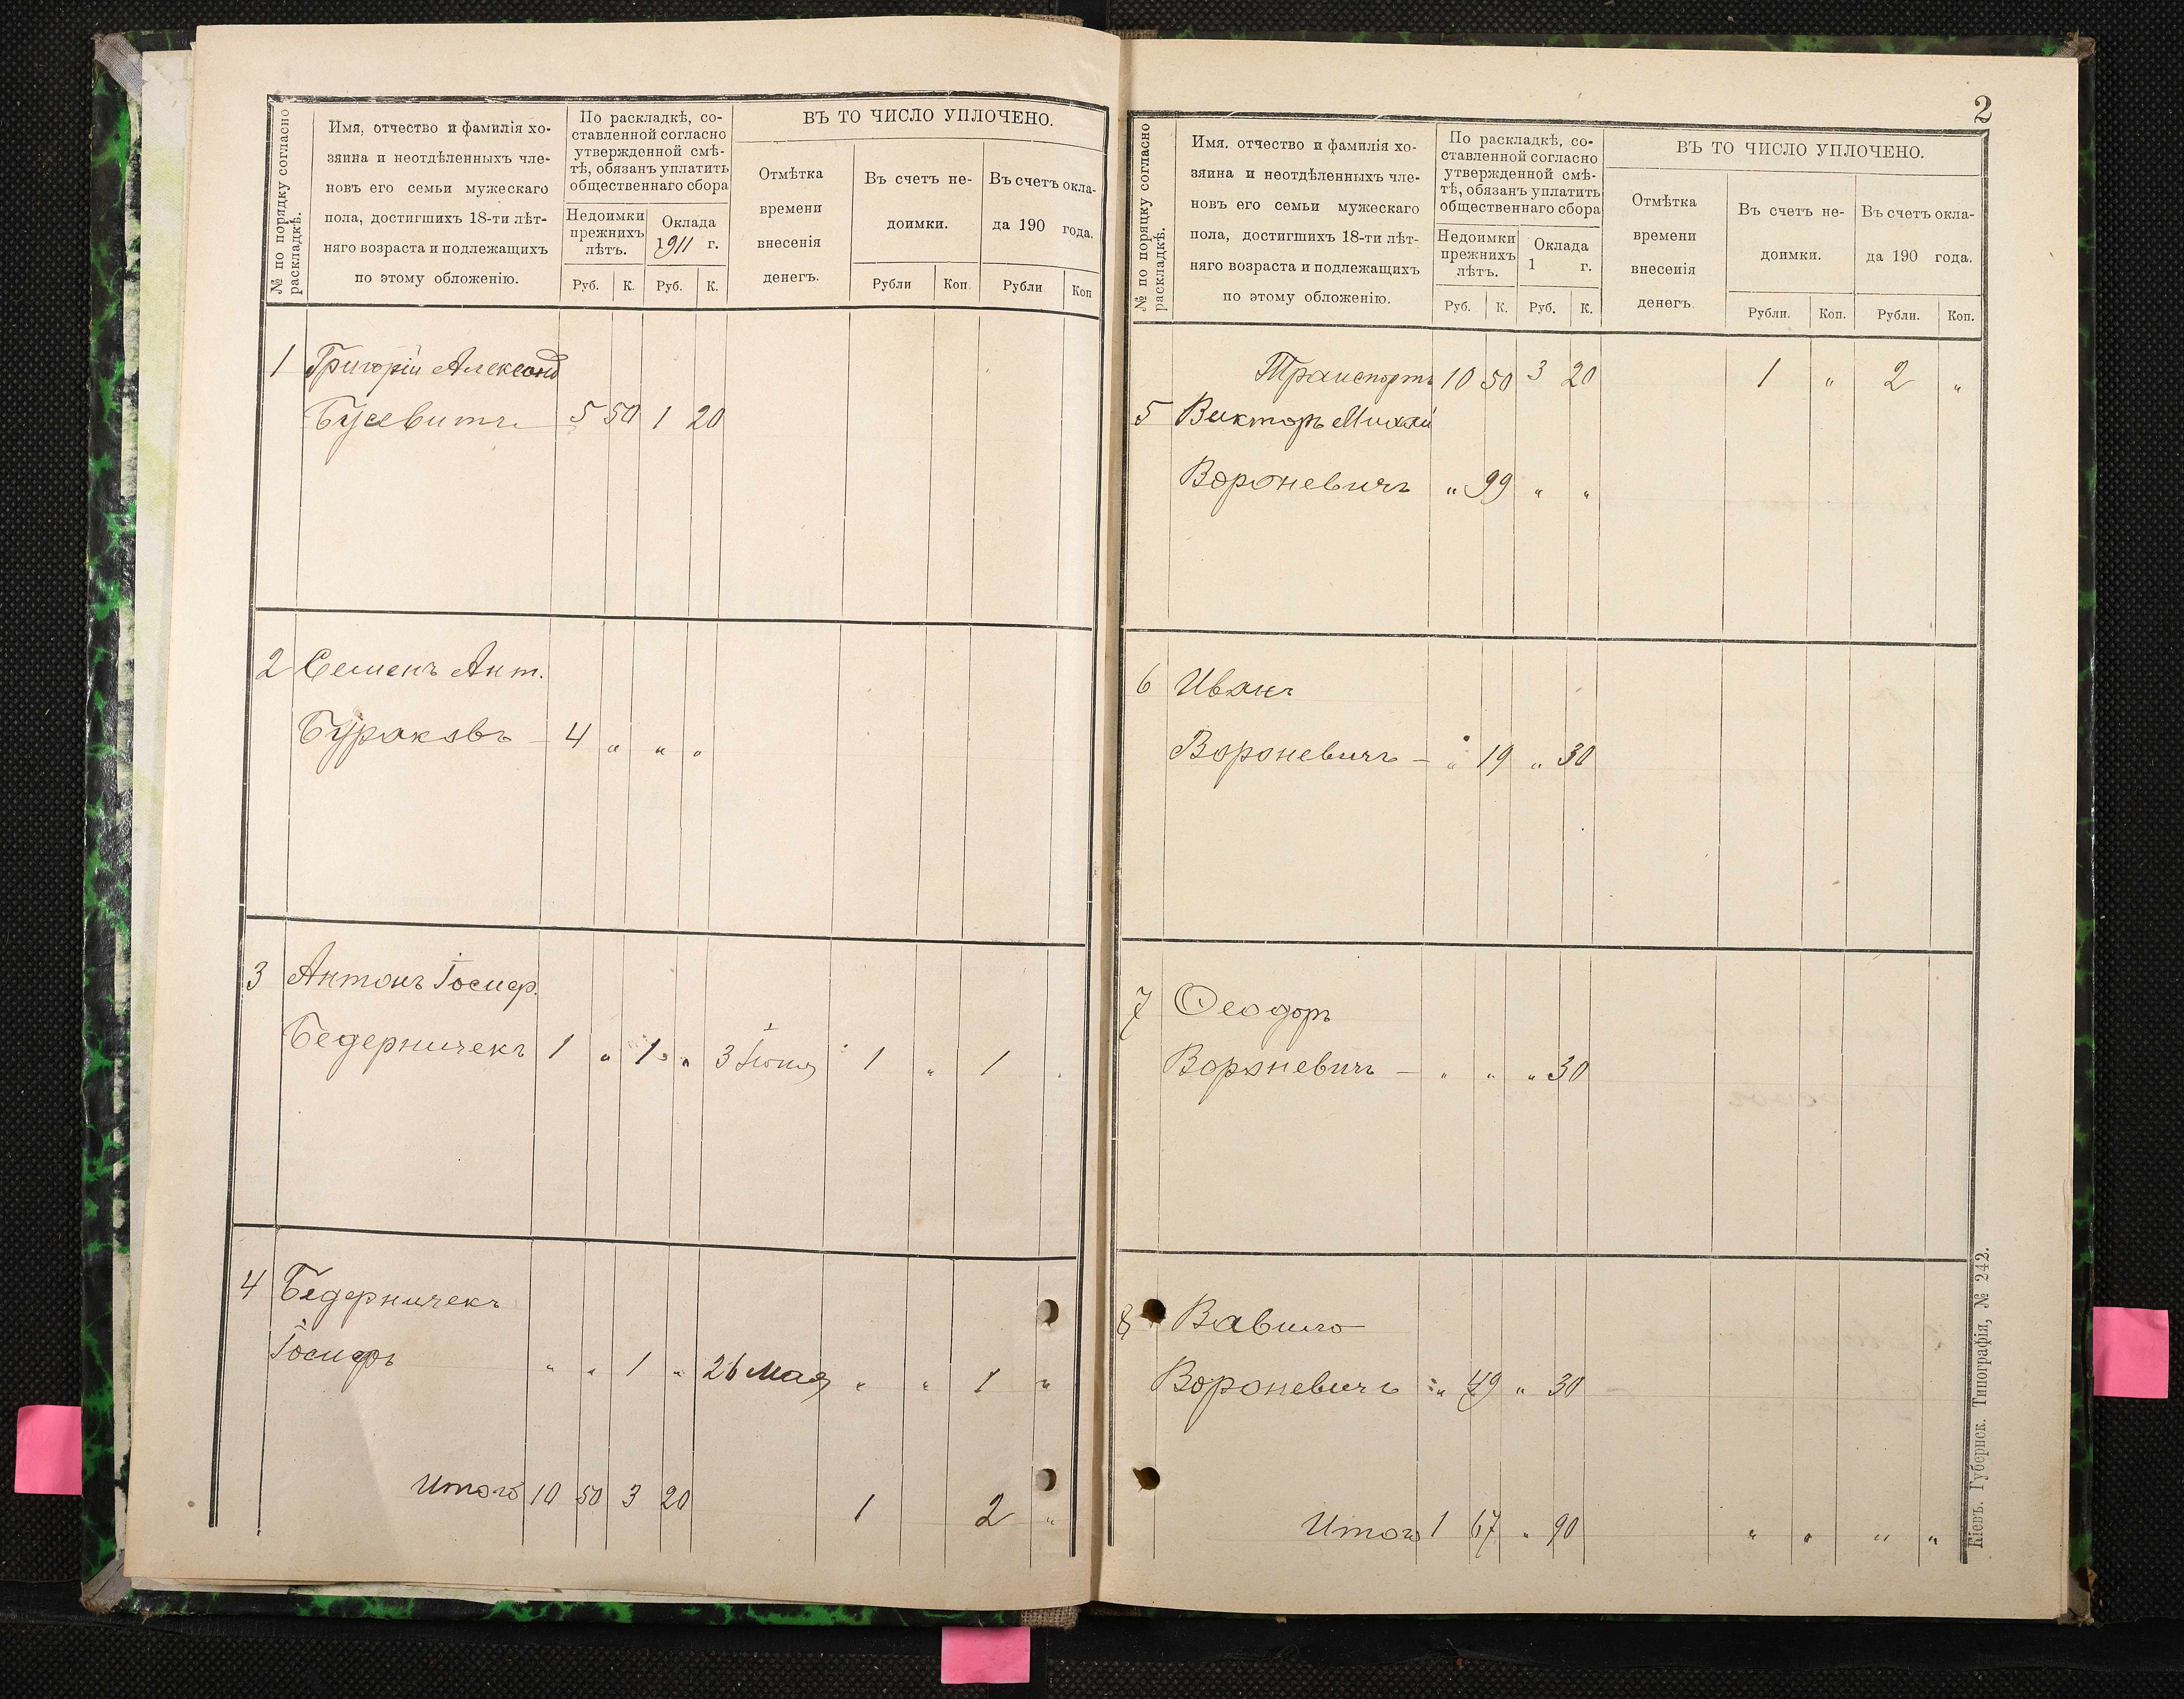 № по порядку согласно раскладкѣ.
Имя, отчество и фамилія хо-
зяина и неотдѣленныхъ чле-
новъ его семьи мужескаго
пола, достигшихъ 18-ти лѣт-
няго возраста и подлежащихъ
по этому обложенію.
По раскладкѣ, со-
ставленной согласно
утвержденной смѣ-
тѣ, обязанъ уплатить
общественнаго сбора
Недоимки прежнихъ лѣтъ.
Оклада 1911 г.
Руб. К. Руб. К.
ВЪ ТО ЧИСЛО УПЛОЧЕНО.
Отмѣтка
времени
внесенія
денегъ.
Въ счетъ не-
доимки.
Рубли Коп.
Въ счетъ окла-
да 190 года.
Рубли Коп
1 Григорій Александ
5 50 1 20
2 Семенъ Ант.
Бураковъ - 4 " " "
3 Антонъ Іосифр.
Бедерничекъ 1 " 1 " 3 Іюня 1 " 1
4 Бедерничекъ
Іосифръ " " 1 " 26 Мая " " 1 "
Итого 10 50 3 20 1 2 "
2
№ по порядку согласно раскладкѣ.
Имя. отчество и фамилія хо-
зяина и неотдѣленныхъ чле-
новъ его семьи мужескаго
пола, достигшихъ 18-ти лѣт-
няго возраста и подлежащихъ
по этому обложенію.
По раскладкѣ, со-
ставленной согласно
утвержденной смѣ-
тѣ, обязанъ уплатить
общественнаго сбора
Недоимки прежнихъ лѣтъ.
Оклада 1 г.
Руб. К. Руб. К.
ВЪ ТО ЧИСЛО УПЛОЧЕНО.
Отмѣтка
времени
внесенія
денегъ.
Въ счетъ не-
доимки.
Рубли. Коп.
Въ счетъ окла-
да 190 года.
Рубли. Коп.
Транспортъ 10 50 3 20 1 " 2 "
5 Викторъ Михай
Вороневичъ " 99 " "
6 Иванъ
Вороневичъ - " 19 " 30
7 Ѳеодоръ
Вороневичъ - " " " 30
8 Вавило
Вороневичъ " 49 " 30
Итого 1 67 " 90 " " " "
Кіевъ. Губернск. Типографія, № 242.